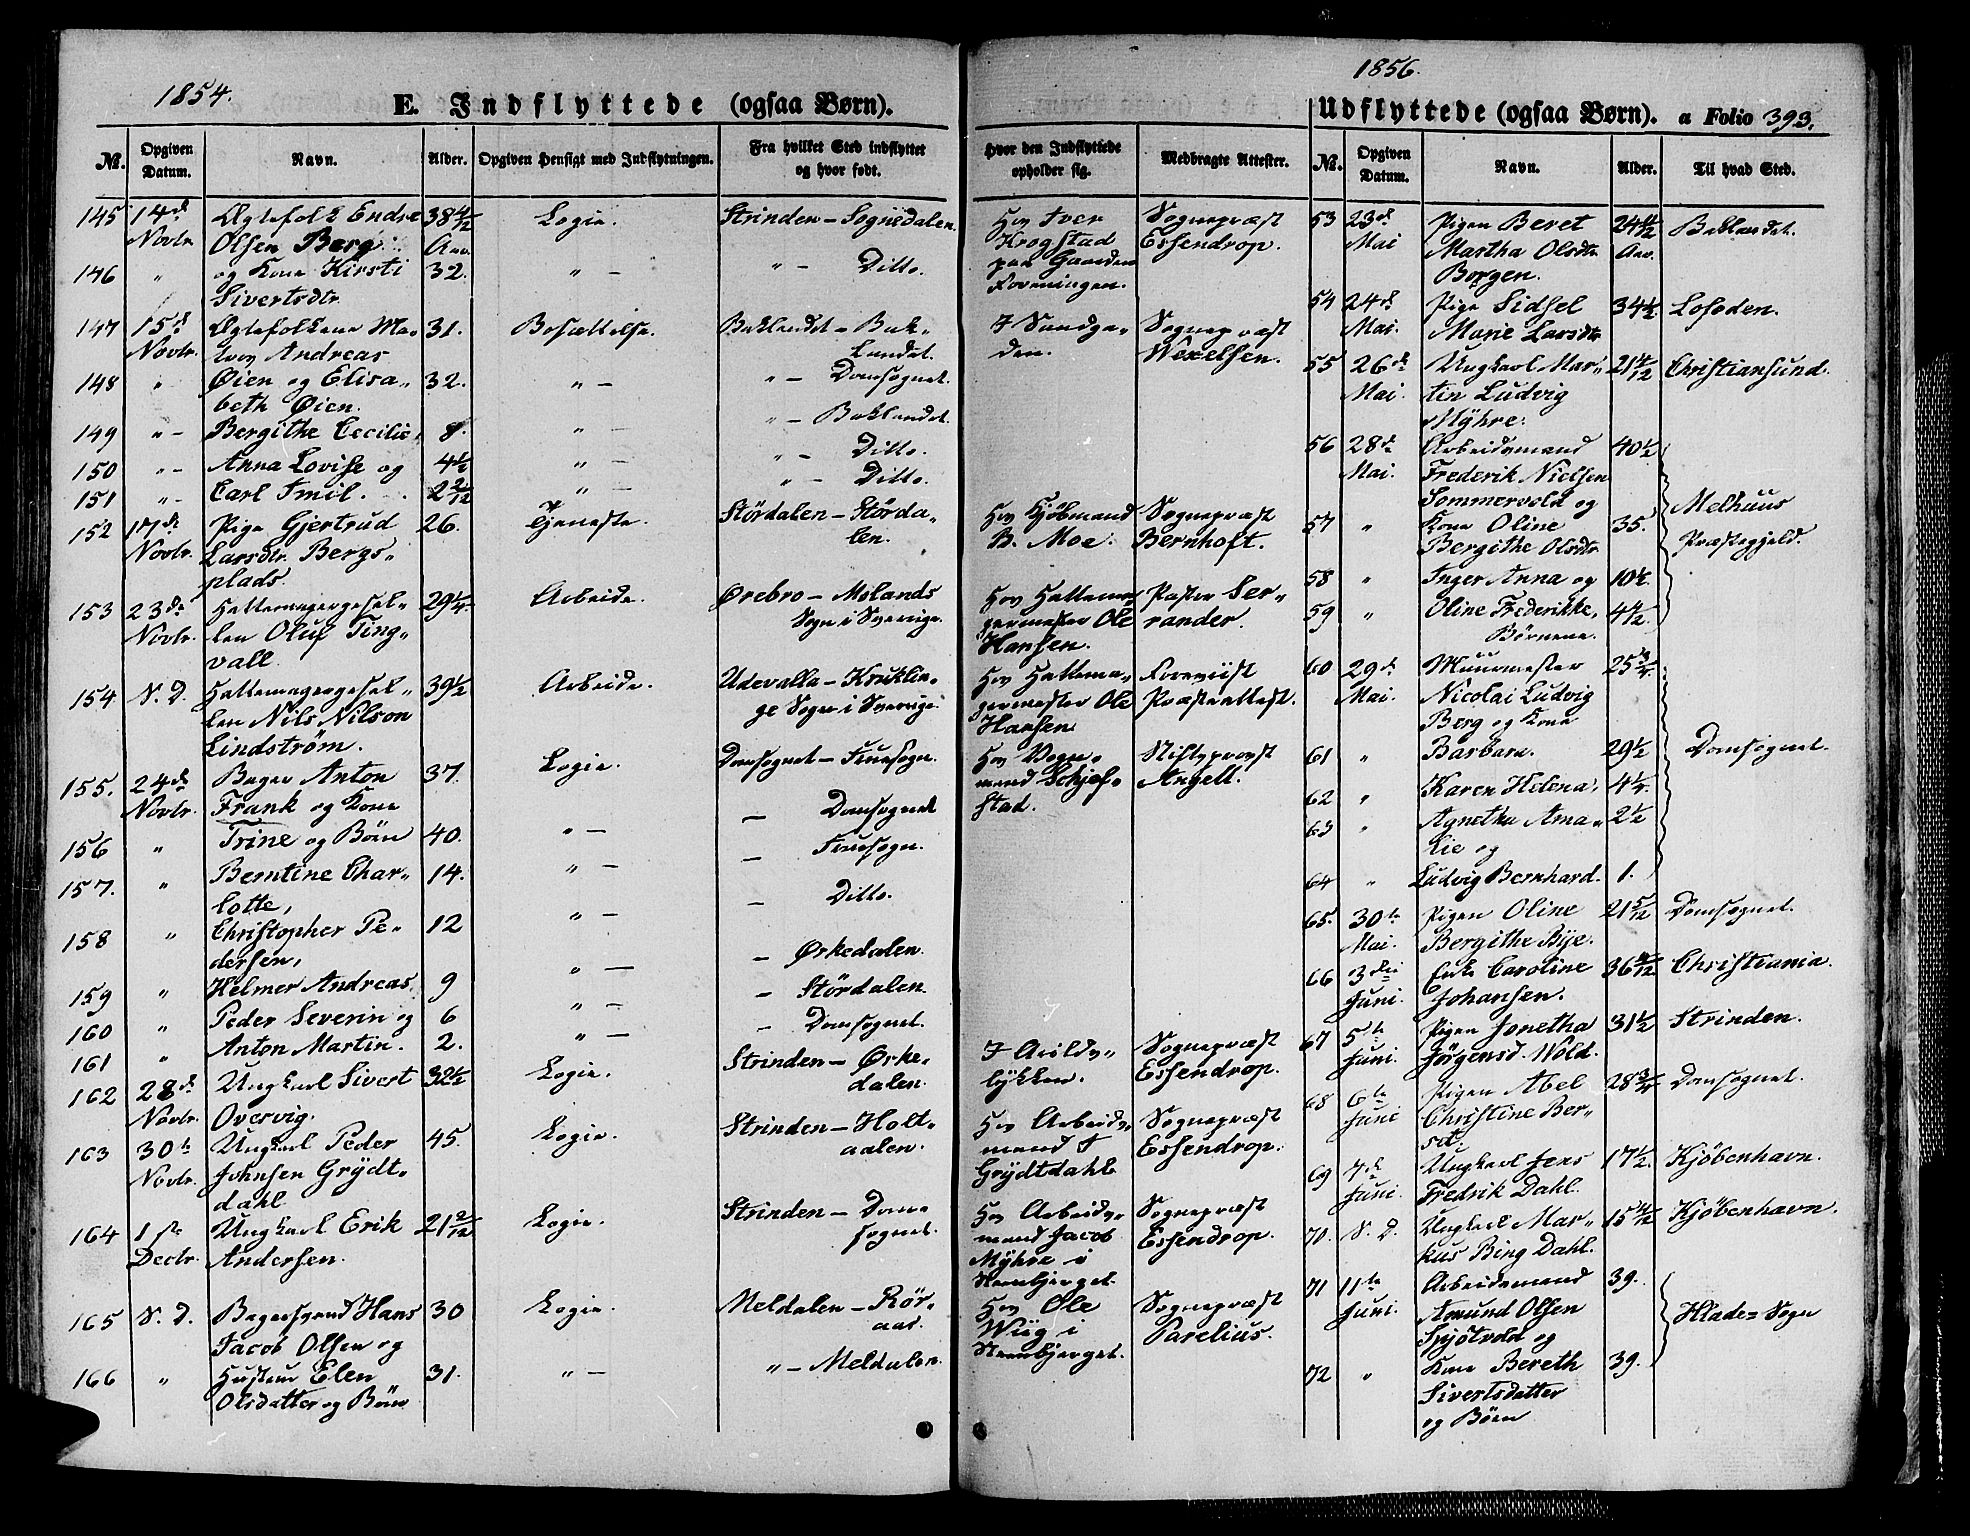 1854.
E. Indflyttede (ogsaa Børn).
№. Opgiven Datum. Navn. Alder. Opgiven Hensigt med Indflytningen. Fra hvilket Sted indflyttet og hvor født. Hvor den Indflyttede opholder sig. Medbragte Attester.
145 14d Novbr. Ægtefolk Endre Olsen Berg 38 4/12 Aar. Logie. Strinden – Sognedalen. Hos Iver Krogstad paa Gaarden Foreningen. Sognepræst Essendrop.
146 " og Kone Kirsti Sivertsdtr. 32. " – " – Ditto.
147 15d Novbr. Ægtefolkene Andreas 31. Bosættelse. Baklandet – Baklandet. I Sandgaden. Sognepræst Wexelsen.
148 " Øien og Elisabeth Øien. 32. " – " – Domsognet.
149 " – Bergithe Cecilie, 8. " – " – Baklandet.
150 " – Anna Lovise og 4 1/2 " – " – Ditto.
151 " – Carl Emil. 2 2/12 " – " – Ditto.
152 17de Novbr. Pige Gjertrud Larsdtr. Bergsplads. 26. Tjeneste. Stördalen – Stördalen. Hos Kjöbmand B. Moe. Sognepræst Bernhoft.
153 23de Novbr. Hattemagergesellen Oluf Tingvall. 29 1/4. Arbeide. Ørebro – Molands Sogn i Sverrige. Hos Hattemagermester Ole Hansen. Pastor Serrander.
154 S. D. Hattemagergesellen Nils Nilson Lindström. 39 1/2 Arbeide. Udevalla – Sogn i Sverrige. Hos Hattemagermester Ole Hansen. Foreviist Præsteattest.
155. 24d Novbr. Bager Anton Frank og Kone 37. Logie. Domsognet – Fruesogn. Hos Vognmand Schjefstad. Stiftsprovst Angell.
156 " Trine og Børn 40. " – – Domsognet
157. " Berntine Charlotte, 14. " – – Fruesogn.
158 " Christopher Pedersen, 12 " – – Ditto.
159 " Helmer Andreas, 9 " – – Ørkedalen.
160 " Peder Severin og 6 " – – Stördalen.
161 " Anton Martin. 2. " – – Domsognet.
162 28d Novbr. Ungkarl Sivert Overvig. 32 1/2 Logie. Strinden – Ørkedalen. I lykken. Sognepræst Essendrop.
163 30te Novbr. Ungkarl Peder Johnsen Grÿdtdahl 45. Logie. Strinden – Holtaalen. Hos Arbeidsmand I Grÿdtdahl. Sognepræst Essendrop.
164 1ste Decbr. Ungkarl Erik Andersen. 21 2/12 Logie. Strinden – Domsognet. Hos Arbeidsmand Jacob Mÿhre i Steenbjerget. Sognepræst Essendrop.
165 S. D. Hans Jacob Olsen og 30 Logie. Meldalen – Röraas. Hos Ole Wiig i Steenbjerget. Sognepræst Parelius.
166 " Hustru Elen Olsdatter og Børn 31. " – " – Meldalen.
1856.
Udflyttede (ogsaa Børn). a Folio 393.
№. Opgiven Datum. Navn. Alder. Til hvad Sted.
53 23d Mai Pigen Beret Martha Olsdtr Borgen. 24 1/2 Aar. Baklandet.
54 24d Mai. Pige Sidsel Marie Larsdtr 34 1/2 Lofoden.
55 26de Mai. Ungkarl Martin Ludvig Mÿhre. 21 4/12 Christiansund.
56 28de Mai. Arbeidsmand Frederik Nielsen Sommervold og 40 1/2 Melhuus Præstegjeld.
57 " Kone Oline Bergithe Olsdtr 35.
58 " Inger Anna og 10 1/2.
59 " Oline Frederikke, Børnene. 4 1/2.
60 29d Mai. Muurmester Nicolai Ludvig Berg og Kone 25 3/4. Domsognet.
61 " Barbara. 29 1/2
62 " Karen Helena, 4 1/4.
63 " Agnetha Amalie og 2 1/2
64 " Ludvig Bernhard. 1.
65. 30te Mai. Pigen Oline Bergithe Bÿe. 21 5/12 Domsognet.
66 3die Juni. Enke Caroline Johansen. 36 Christiania.
67 5te Juni. Pigen Jonetha Jörgensd. Wold. 31 1/2 Strinden.
68 6te Juni Pigen Abel Christine Bersd. 28 3/4 Domsognet.
69 7d Juni. Ungkarl Jens Fredrik Dahl. 17 1/2. Kjöbenhavn.
70. S. D. Ungkarl Markus Bing Dahl. 15 Kjöbenhavn.
71 11te Juni. Arbeidsmand Amund Olsen Spjötvold og 39. Hlade= Sogn
72 " Kone Bereth Sivertsdatter og Børn 39.